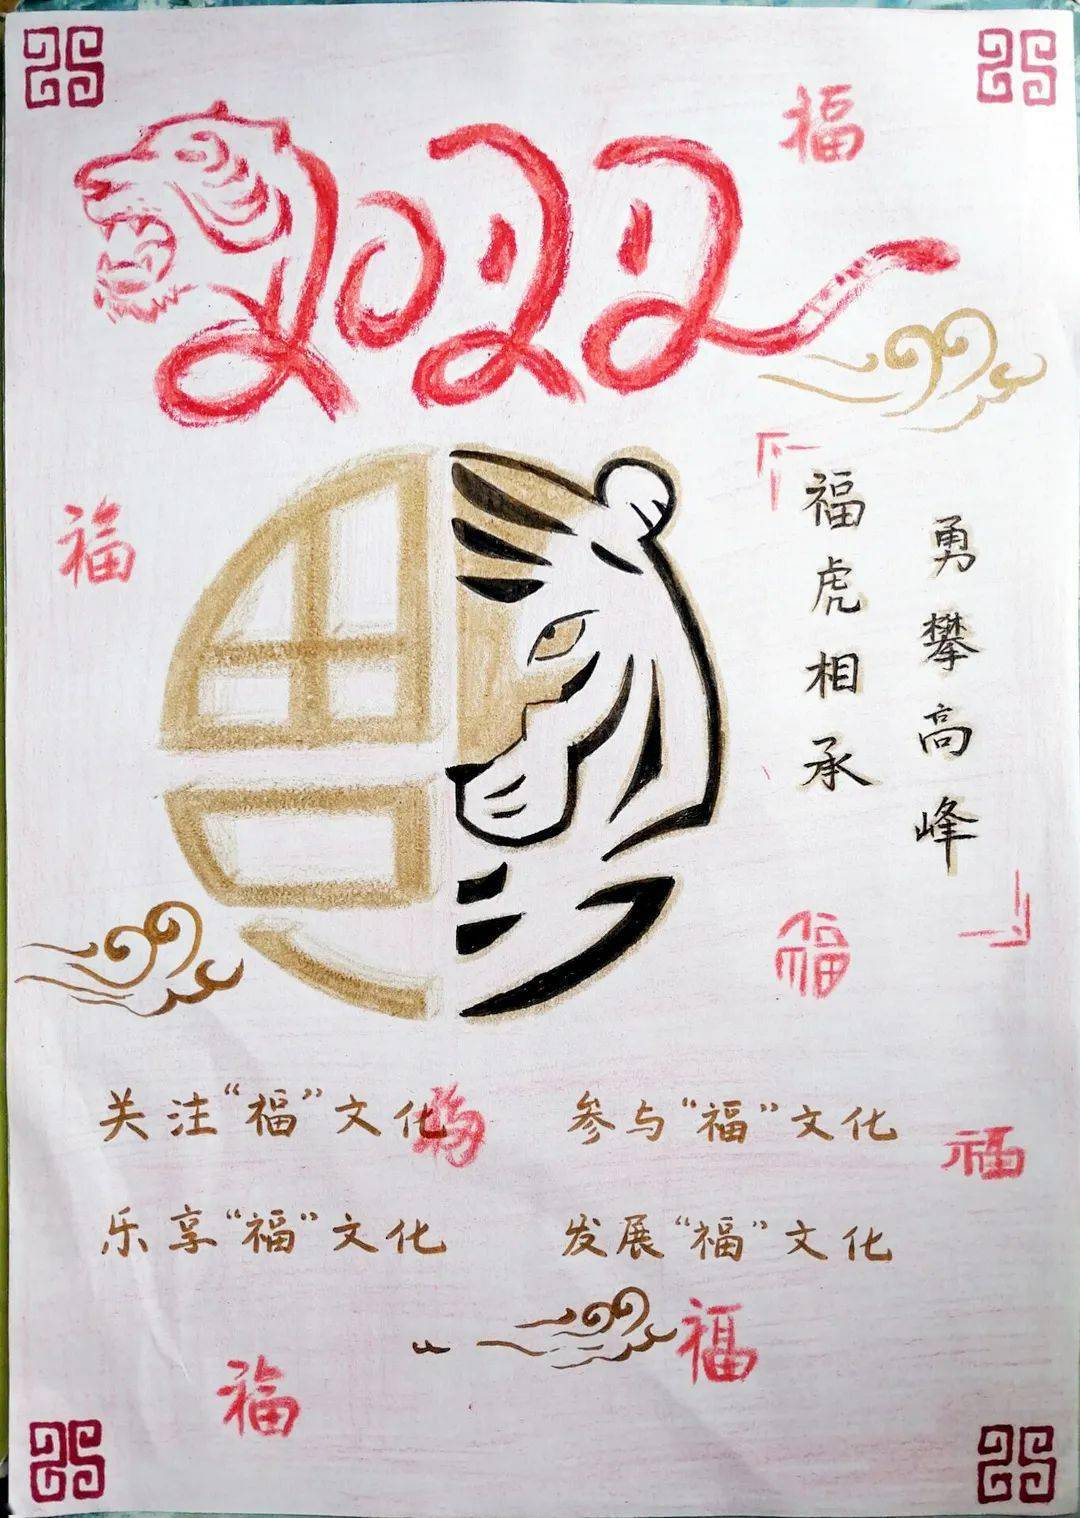 2022
福
福
福虎相承
勇攀高峰
福
关注“福”文化
福
参与“福”文化
福
乐享“福”文化
发展“福”文化
福
福